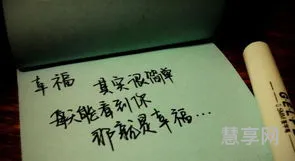 幸福 其实很简单
每天能看到你
那就是幸福…
慧享网